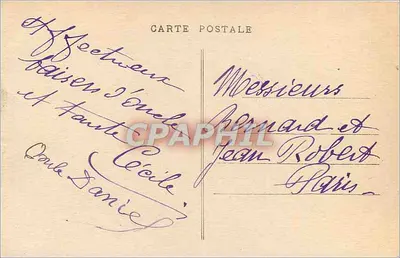 CARTE POSTALE
Affectueux
baisers d'oncle
et tante
Cécile
Oncle
Daniel
Messieurs
Bernard et
Jean Robert
Paris
CPAPHIL